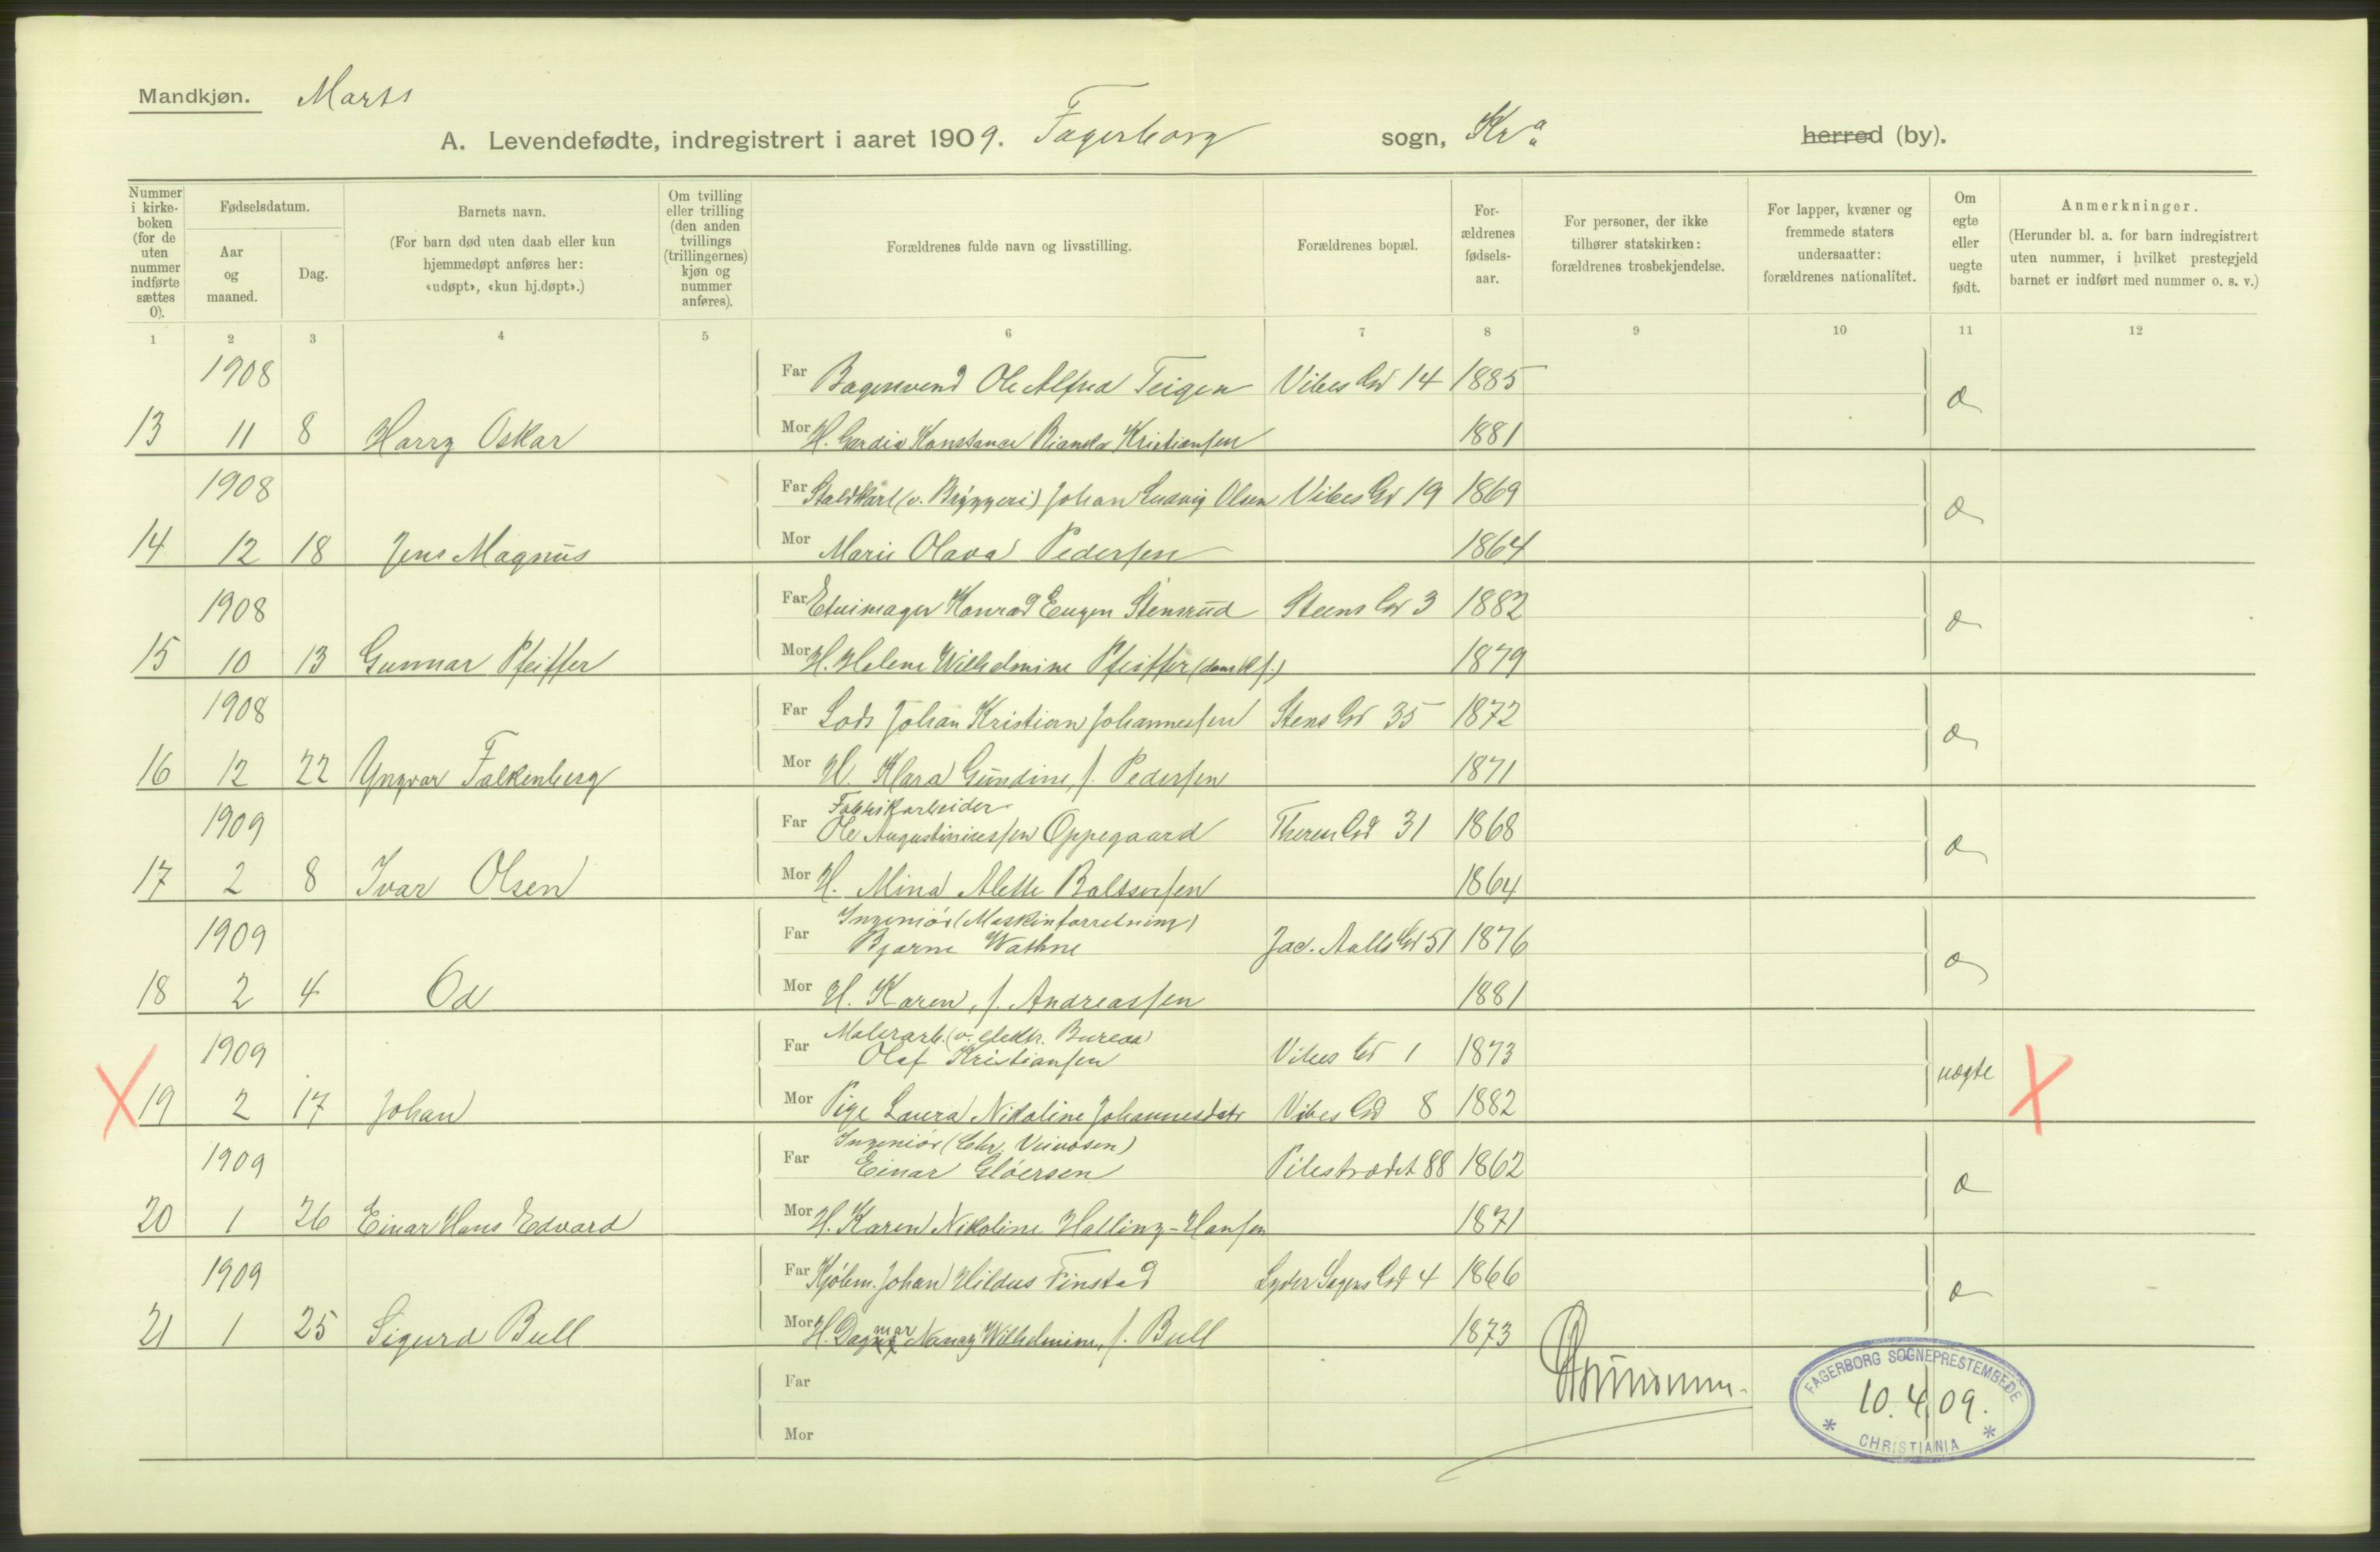 Mandkjøn. Marts
A. Levendefødte, indregistrert i aaret 1909. Fagerborg sogn, Kra herred (by).
Nummer i kirke-boken (for de uten nummer indførte sættes 0).
Fødselsdatum.
Aar og maaned.
Dag.
Barnets navn.
(For barn død uten daab eller kun hjemmedøpt anføres her: «udøpt», «kun hj.døpt».)
Om tvilling eller trilling (den anden tvillings (trillingernes) kjøn og nummer anføres).
Forældrenes fulde navn og livsstilling.
Forældrenes bopæl.
For-ældrenes fødsels-aar.
For personer, der ikke tilhører statskirken: forældrenes trosbekjendelse.
For lapper, kvæner og fremmede staters undersaatter: forældrenes nationalitet.
Om egte eller uegte født.
Anmerkninger.
(Herunder bl. a. for barn indregistrert uten nummer, i hvilket prestegjeld barnet er indført med nummer o. s. v.)
1 2 3 4 5 6 7 8 9 10 11 12
1908 Far Bagersvend Ole Alfred Teigen Vibes Gd 14 1885
13 11 8 Harry Oskar Mor H. Gardia Konstance Bianka Kristiansen 1881
1908 Far Staldkarl (v. Bryggeri) Johan Ludvig Olsen Vibes Gd 19 1869
14 12 18 Jens Magnus Mor Marie Olava Pedersen 1864
1908 Far Etuimager Konrad Eugen Stensrud Steens Gd 3 1882
15 10 13 Gunnar Pfeiffer Mor H. Helene Wilhelmine Pfeiffer (dansk f.) 1879
1908 Far Lods Johan Kristian Johannessen Stens Gd 35 1872
16 12 22 Yngvar Falkenberg Mor H. Klara Gundine, f. Pedersen 1871
Fabrikarbeider
1909 Far Ole Augustiniussen Oppegaard Theres Gd 31 1868
17 2 8 Ivar Olsen Mor H. Mina Alette Baltsersen 1864
Ingeniör (Maskinforretning)
1909 Far Bjarne Wathne Jac. Aalls Gd 51 1876
18 2 4 Od Mor H. Karen, f. Andreassen 1881
Malerarb. (v. elektr. Bureau)
1909 Far Olaf Kristiansen Vibes Gd 1 1873 uægte
19 2 17 Johan Mor Pige Laura Nikoline Johannesdatr Vibes Gd 8 1882
Ingeniör (Chr. Veivæsen)
1909 Far Einar Glöersen Pilestrædet 88 1862
20 1 26 Einar Hans Edvard Mor H. Karen Nikoline Halling-Hansen 1871
1909 Far Kjöbm. Johan Hildus Finstad Lyder Sagens Gd 4 1866
21 1 25 Sigurd Bull Mor H. Dagmar Nancy Wilhelmine, f. Bull 1873
Far
Mor
FAGERBORG SOGNEPRESTEMBEDE
10.4.09.
* CHRISTIANIA *